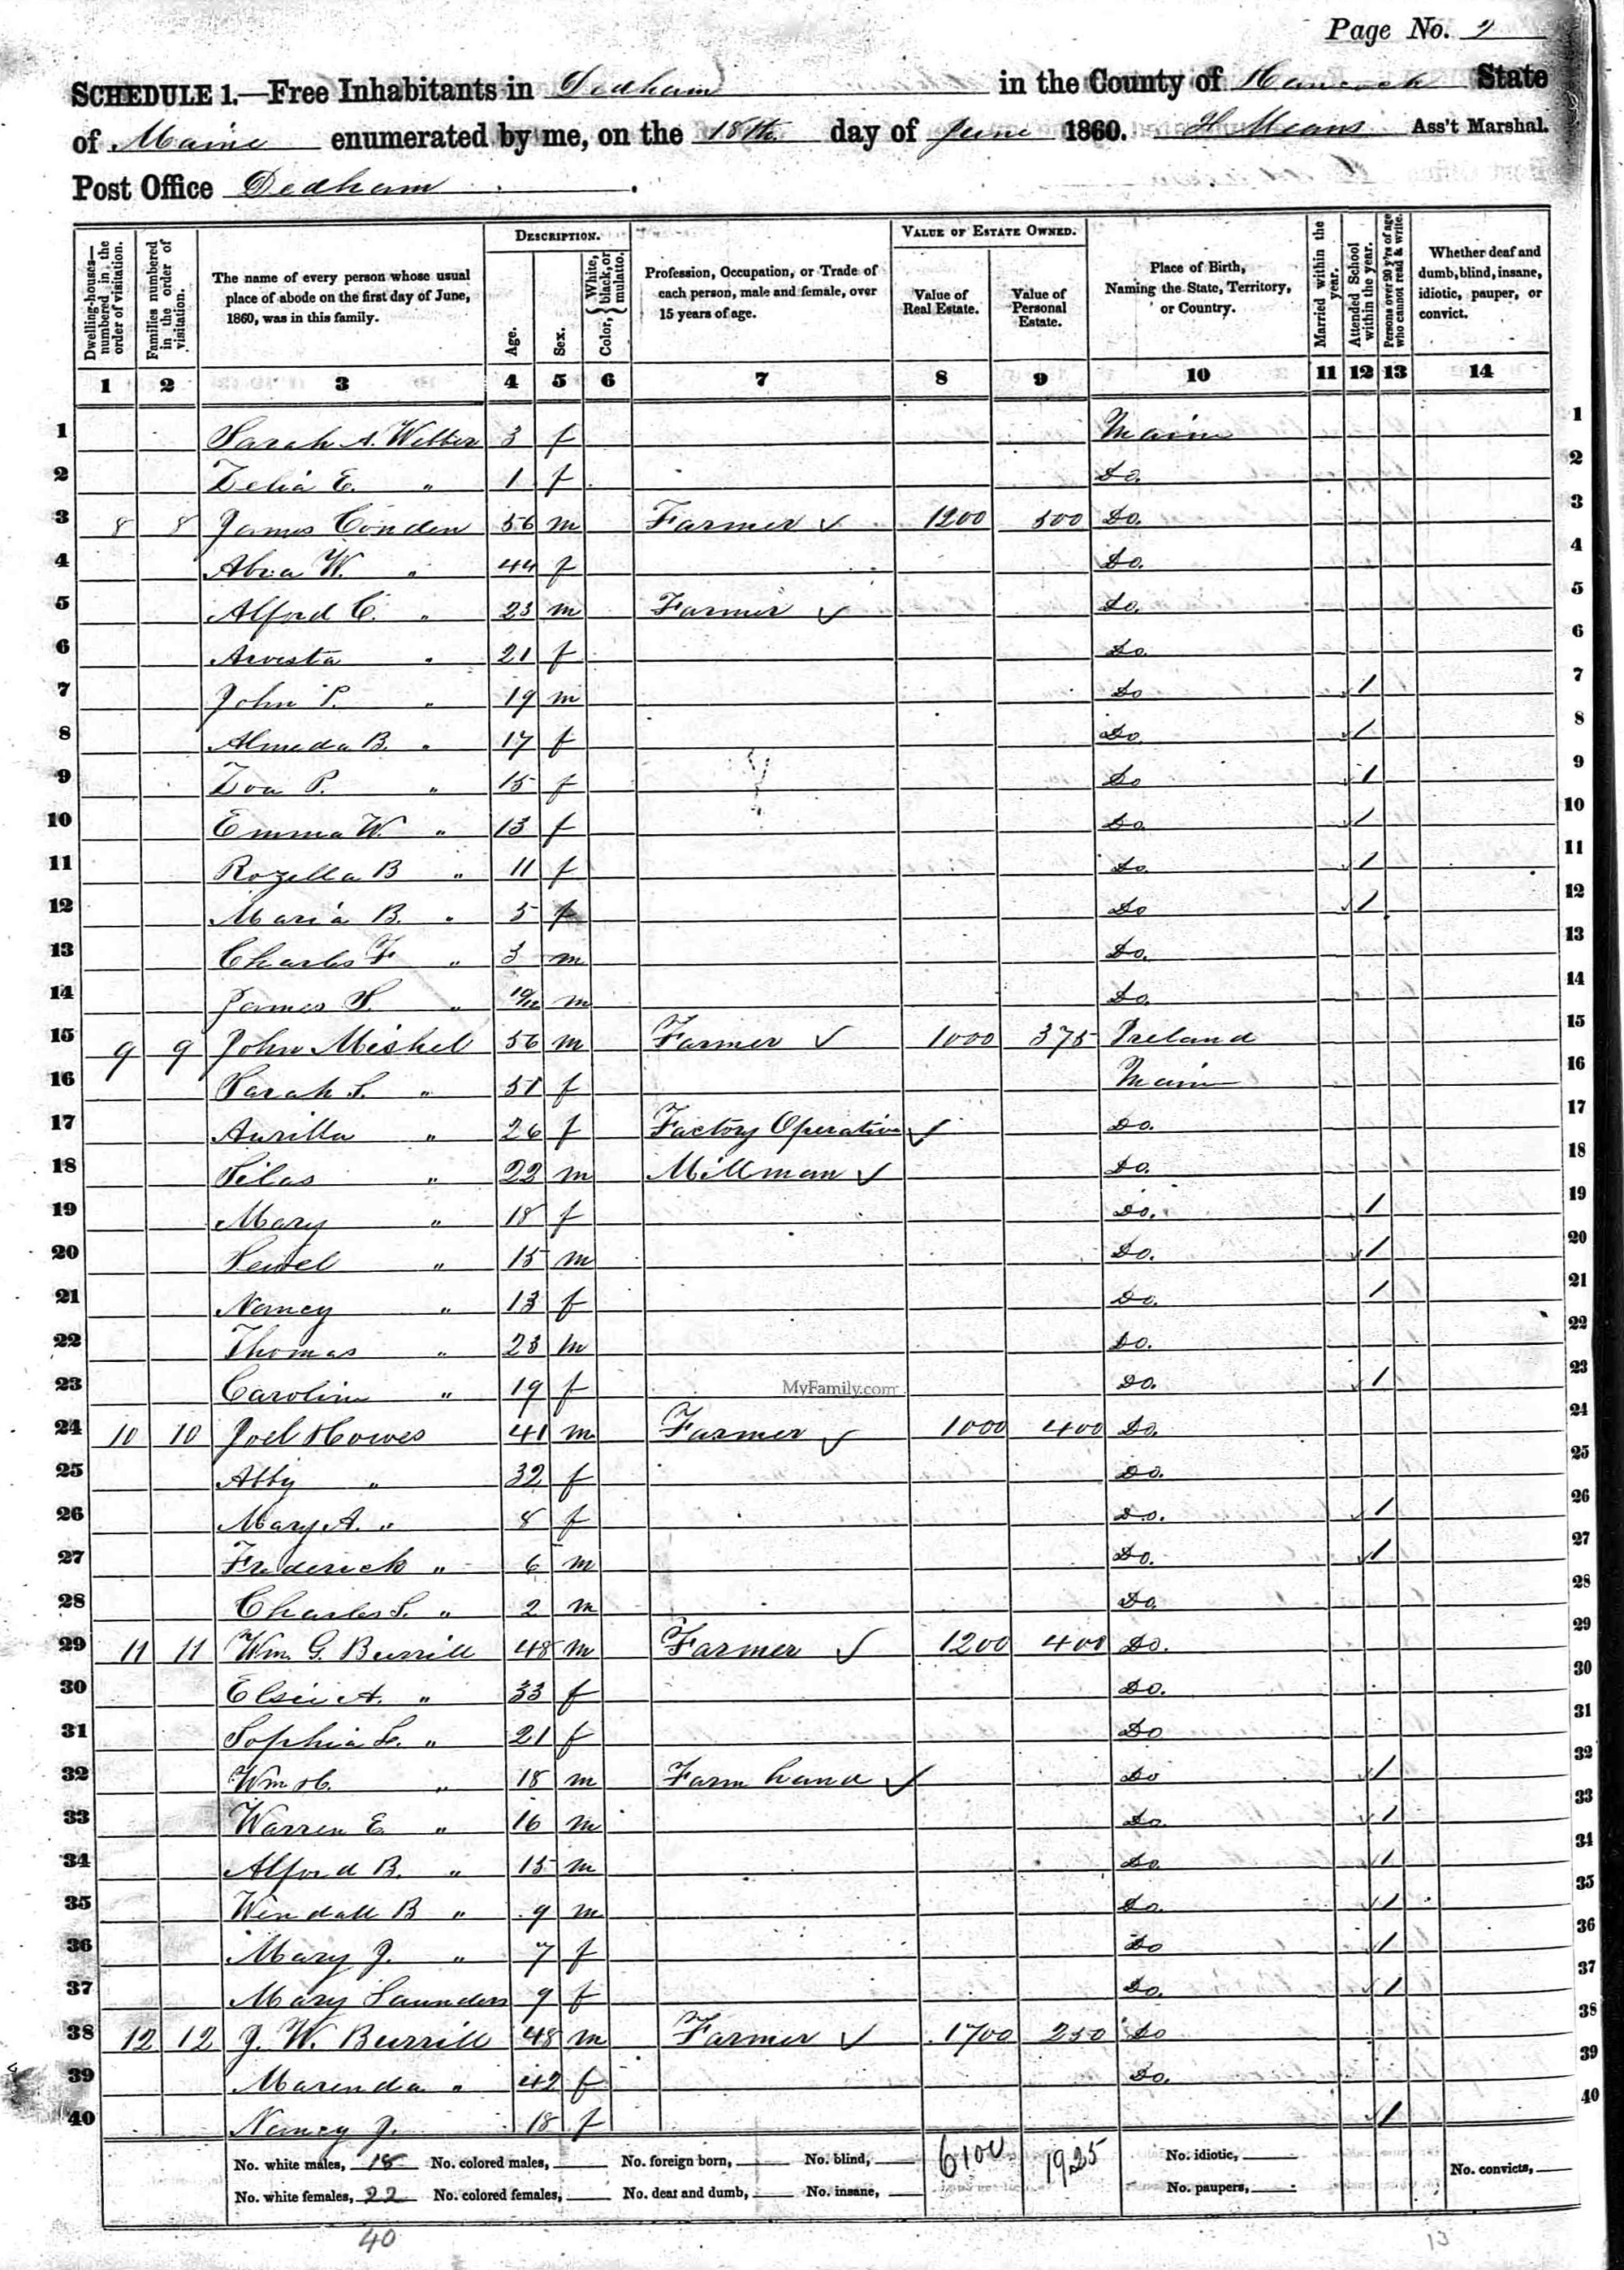 Page No. 2
SCHEDULE 1.—Free Inhabitants in Dedham in the County of Hancock State
of Maine enumerated by me, on the 18th day of June 1860. H Means Ass't Marshal.
Post Office Dedham
Dwelling-houses—numbered in the order of visitation.
Families numbered in the order of visitation.
The name of every person whose usual place of abode on the first day of June, 1860, was in this family.
DESCRIPTION.
Age.
Sex.
Color, { White, black, or mulatto.
Profession, Occupation, or Trade of each person, male and female, over 15 years of age.
VALUE OF ESTATE OWNED.
Value of Real Estate.
Value of Personal Estate.
Place of Birth, Naming the State, Territory, or Country.
Married within the year.
Attended School within the year.
Persons over 20 y'rs of age who cannot read & write.
Whether deaf and dumb, blind, insane, idiotic, pauper, or convict.
1 2 3 4 5 6 7 8 9 10 11 12 13 14
1 Sarah A. Webber 3 f Maine 1
2 Zelia E. " 1 f Do. 2
3 8 8 James Conden 56 m Farmer ✓ 1200 500 Do. 3
4 Abra W. " 44 f Do. 4
5 Alford C. " 23 m Farmer ✓ Do. 5
6 Arvesta " 21 f Do. 6
7 John P. " 19 m Do 1 7
8 Almeda B. " 17 f Do. 1 8
9 Zoa P. " 15 f Do 1 9
10 Emma W. " 13 f Do. 1 10
11 Rozella B " 11 f Do. 1 11
12 Maria B. " 5 f Do 1 12
13 Charles F " 3 m Do. 13
14 James S. " 10/12 m Do. 14
15 9 9 John Mishel 56 m Farmer ✓ 1000 375 Ireland 15
16 Sarah S. " 51 f Maine 16
17 Aurilla " 26 f Factory Operative ✓ Do. 17
18 Silas " 22 m Millman ✓ Do. 18
19 Mary " 18 f Do. 1 19
20 Sewel " 15 m Do. 1 20
21 Nancy " 13 f Do. 1 21
22 Thomas " 23 m Do. 22
23 Caroline " 19 f Do. 1 23
MyFamily.com
24 10 10 Joel Howes 41 m Farmer ✓ 1000 400 Do. 24
25 Abby " 32 f Do. 25
26 Mary A. " 8 f Do. 1 26
27 Frederick " 6 m Do. 1 27
28 Charles S. " 2 m Do. 28
29 11 11 Wm. G. Burrill 48 m Farmer ✓ 1200 400 Do. 29
30 Elsie A. " 33 f Do. 30
31 Sophia L. " 21 f Do 31
32 Wm H. " 18 m Farm hand ✓ Do 1 32
33 Warren E. " 16 m Do. 1 33
34 Alford B. " 15 m Do. 1 34
35 Wendall B " 9 m Do. 1 35
36 Mary J. " 7 f Do 1 36
37 Mary Saunders 9 f Do. 1 37
38 12 12 J. W. Burrill 48 m Farmer ✓ 1700 250 Do 38
39 Marenda " 42 f Do. 39
40 Nancy J. 18 f 1 40
No. white males, 18 No. colored males, No. foreign born, No. blind, 6100 1925 No. idiotic, No. convicts,
No. white females, 22 No. colored females, No. deaf and dumb, No. insane, No. paupers,
40